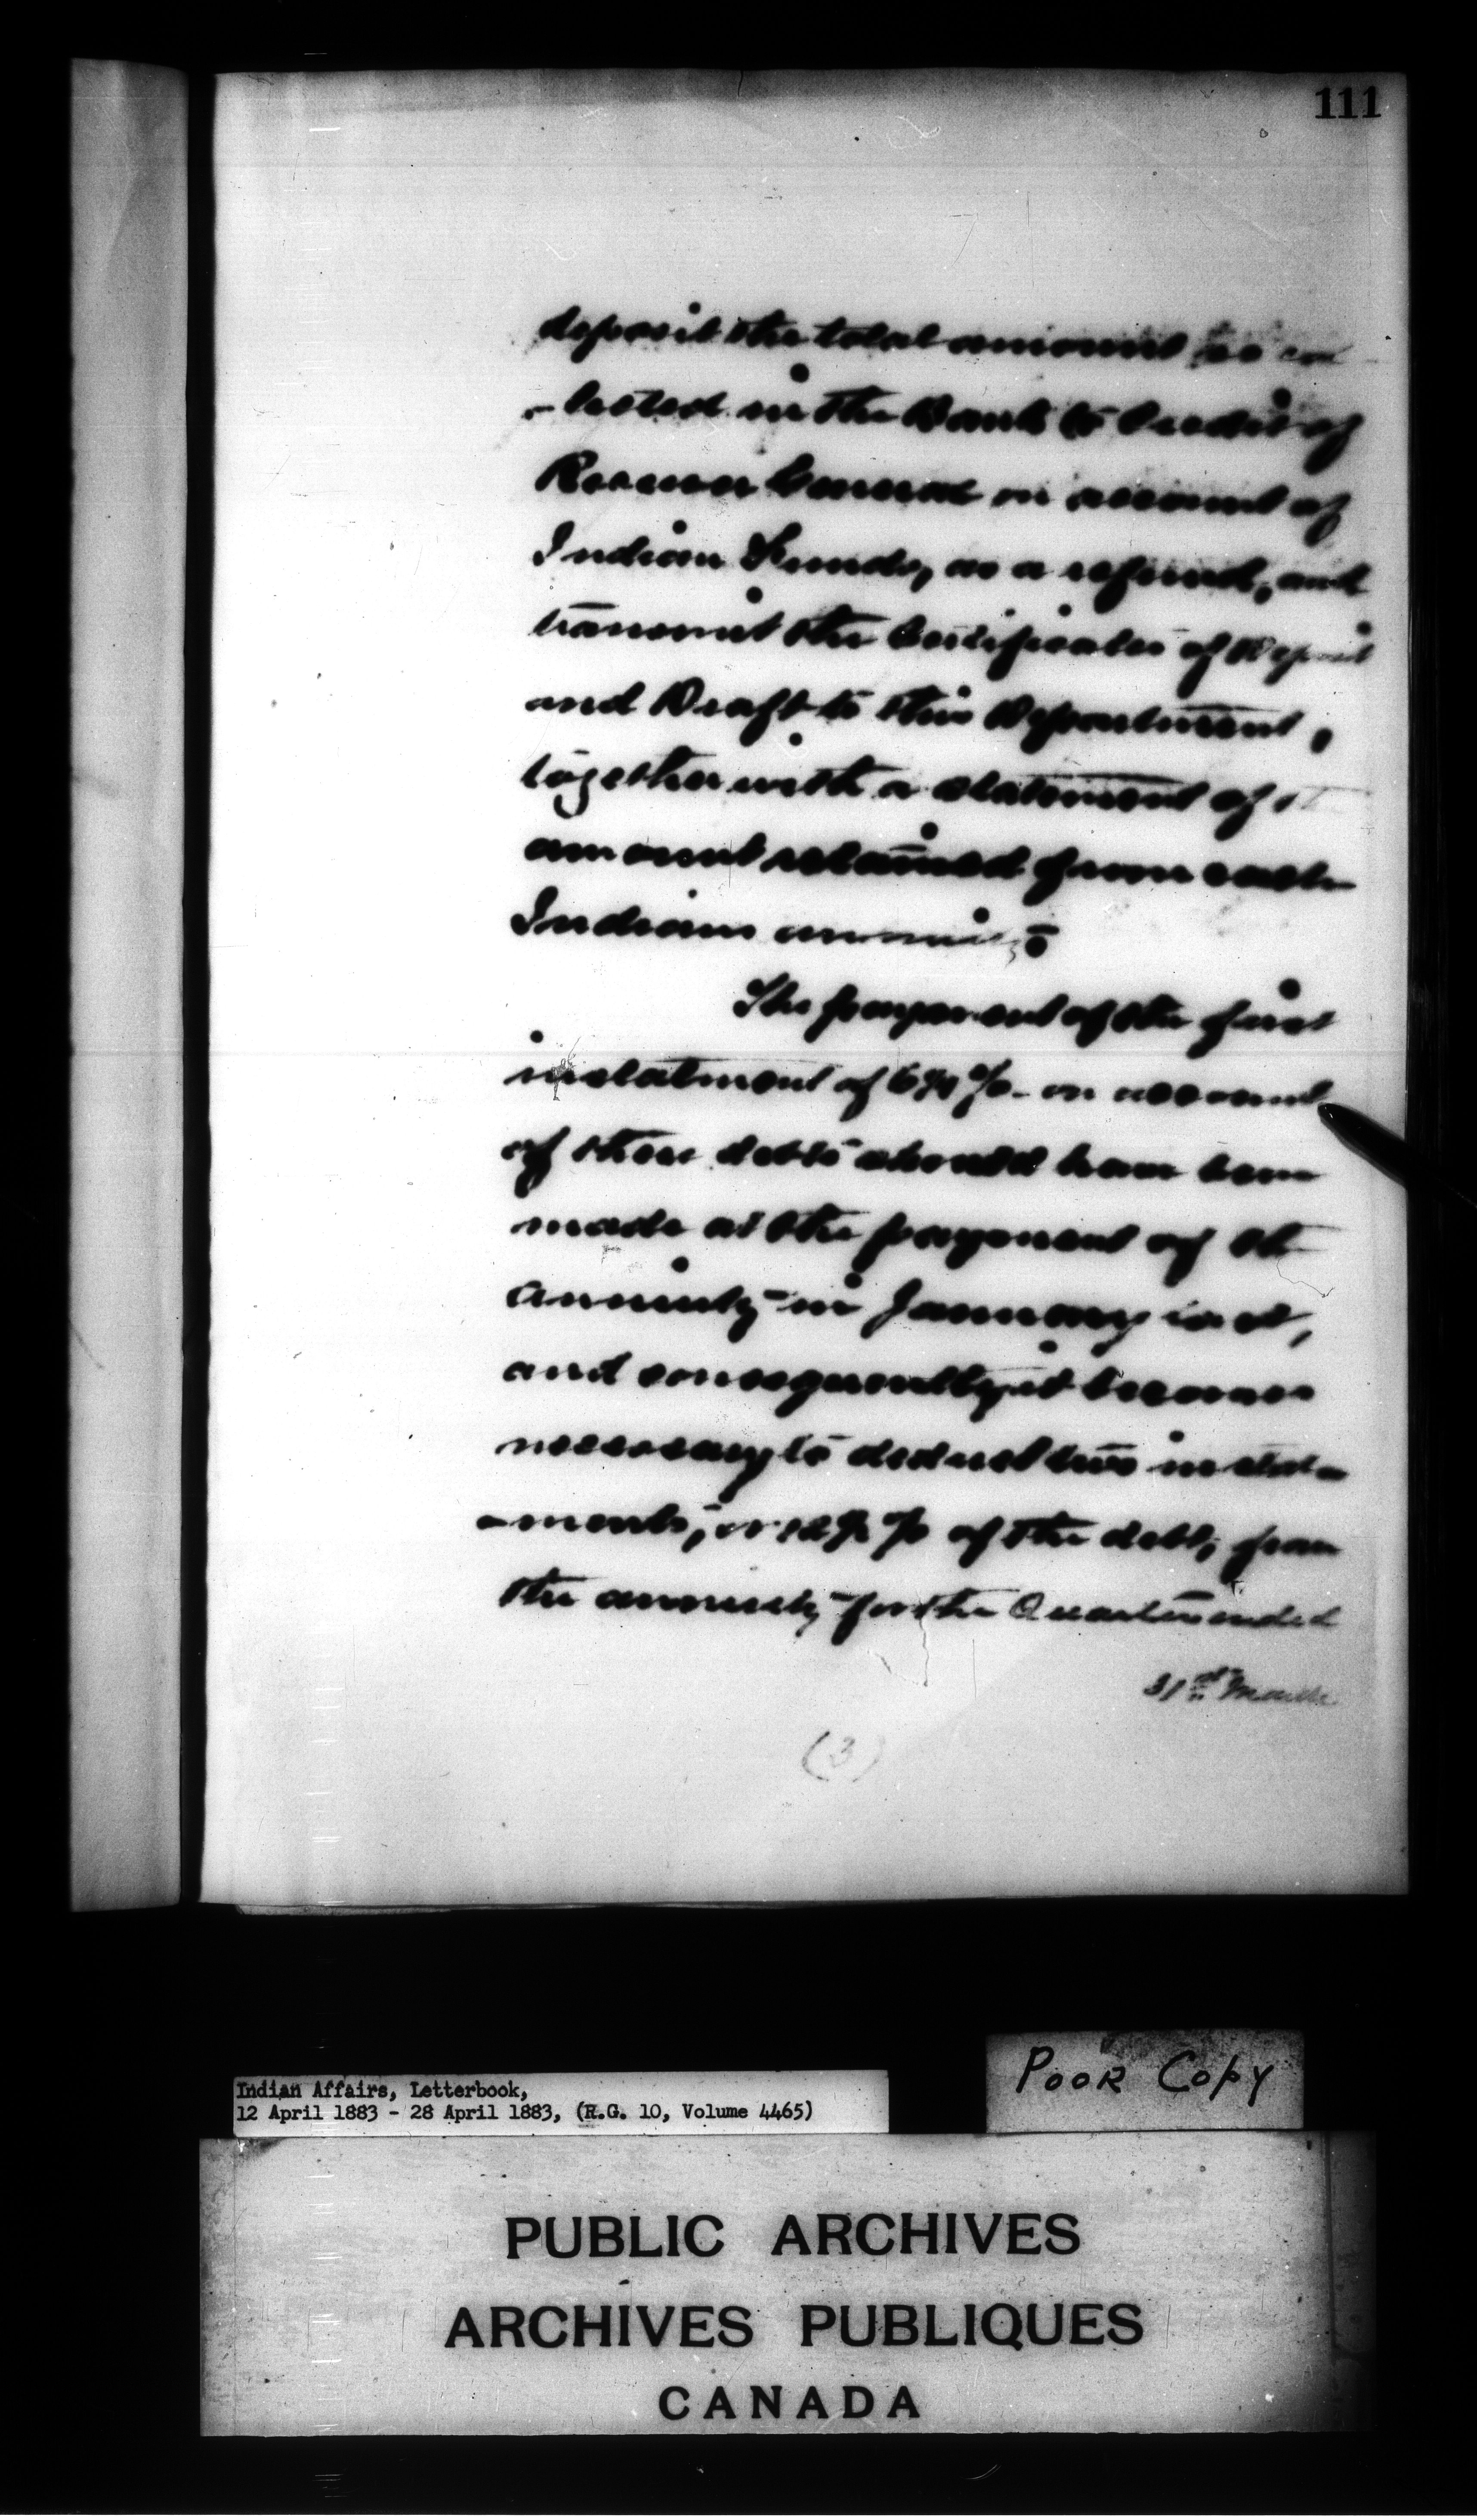 111
deposit the total amount so col
-lected in the Bank to Credit of
Receiver General on account of
Indian Funds, as a refund, and
transmit the Certificates of Deposit
and Draft to this Department,
together with a statement of
amount retained from each
Indian annuity
The payment of the first
instalment of 6¼ % on account
of these debts should have been
made at the payment of the
annuity in January last,
and consequently it becomes
necessary to deduct two instal-
-ments, or 12½ % of the debt, from
the annuity for the Quarter ended
31st March
(3)
Poor Copy
Indian Affairs, Letterbook,
12 April 1883 - 28 April 1883, (R.G. 10, Volume 4465)
PUBLIC ARCHIVES
ARCHIVES PUBLIQUES
CANADA